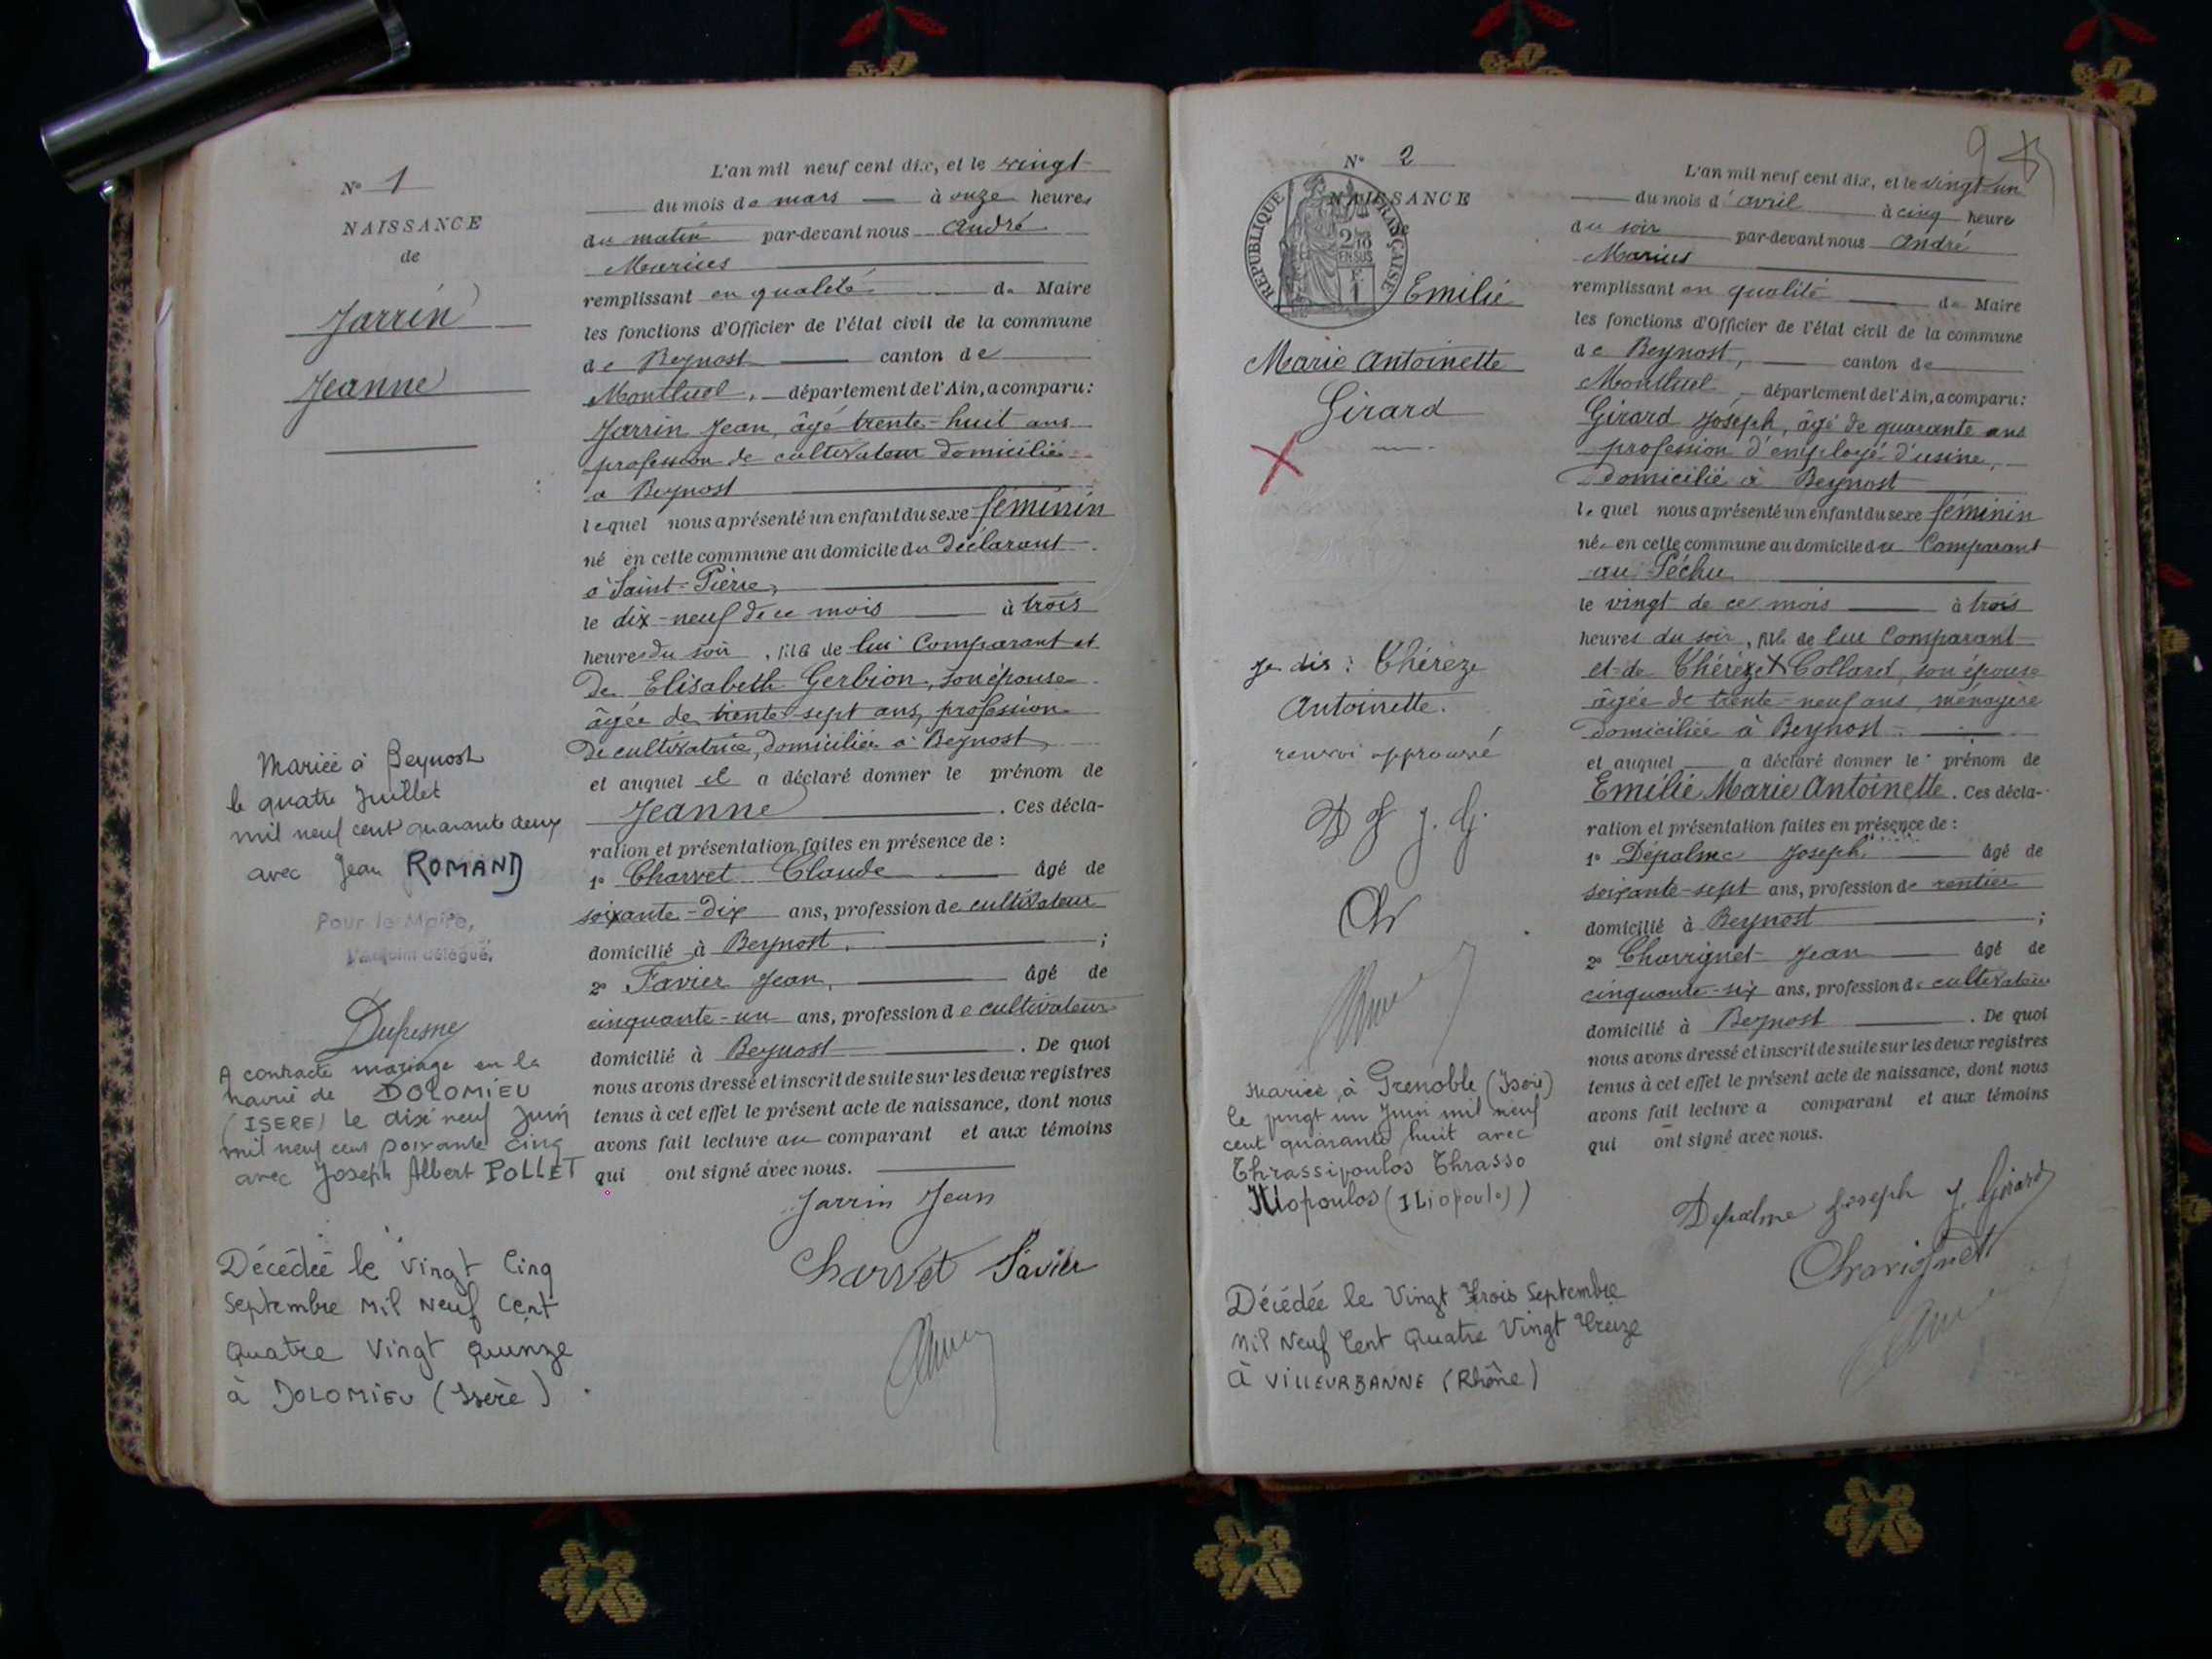 N° 1
NAISSANCE
de
Jarrin
Jeanne
L'an mil neuf cent dix, et le vingt
du mois de mars à onze heures
du matin par-devant nous André
Marius
remplissant en qualité de Maire
les fonctions d'Officier de l'état civil de la commune
de Beynost canton de
Montluel, département de l'Ain, a comparu:
Jarrin Jean, âgé trente-huit ans
profession de cultivateur domicilié
à Beynost
lequel nous a présenté un enfant du sexe féminin
né en cette commune au domicile du déclarant
à Saint-Pierre,
le dix-neuf de ce mois à trois
heures du soir, fille de lui Comparant et
De Elisabeth Gerbion, son épouse
âgée de trente-sept ans, profession
De cultivatrice, domiciliée à Beynost
et auquel il a déclaré donner le prénom de
Jeanne. Ces décla-
ration et présentation faites en présence de :
1° Charvet Claude âgé de
soixante-dix ans, profession de cultivateur
domicilié à Beynost. ;
2° Favier Jean, âgé de
cinquante-un ans, profession de cultivateur
domicilié à Beynost. De quoi
nous avons dressé et inscrit de suite sur les deux registres
tenus à cet effet le présent acte de naissance, dont nous
avons fait lecture au comparant et aux témoins
qui ont signé avec nous.
Jarrin Jean
Charvet Favier
Mariée à Beynost
le quatre Juillet
mil neuf cent quarante deux
avec Jean ROMAND
Pour le Maire,
l'adjoint délégué,
Dufresne
A contracté mariage en la
mairie de DOLOMIEU
(ISERE) le dix neuf Juin
mil neuf cent soixante cinq
avec Joseph Albert POLLET
Décédée le Vingt Cinq
Septembre Mil Neuf Cent
Quatre Vingt Quinze
à DOLOMIEU (Isère).
N° 2
NAISSANCE
RÉPUBLIQUE FRANÇAISE
2/10
EN SUS
F.
1
Emilie
Marie Antoinette
Girard
9
L'an mil neuf cent dix, et le vingt-un
du mois d'avril à cinq heure
du soir par-devant nous André
Marius
remplissant en qualité de Maire
les fonctions d'Officier de l'état civil de la commune
de Beynost, canton de
Montluel département de l'Ain, a comparu:
Girard Joseph, âgé de quarante ans
profession d'employé d'usine,
Domicilié à Beynost
lequel nous a présenté un enfant du sexe féminin
née en cette commune au domicile du Comparant
au Péchu
le vingt de ce mois à trois
heures du soir, fille de lui Comparant
et de Thérèze X Collard, son épouse
âgée de trente-neuf ans, ménagère
Domiciliée à Beynost
et auquel a déclaré donner le prénom de
Emilie Marie Antoinette. Ces décla-
ration et présentation faites en présence de :
1° Depalme Joseph âgé de
soixante-sept ans, profession de rentier
domicilié à Beynost ;
2° Chavrignet Jean âgé de
cinquante-six ans, profession de cultivateur
domicilié à Beynost. De quoi
nous avons dressé et inscrit de suite sur les deux registres
tenus à cet effet le présent acte de naissance, dont nous
avons fait lecture a comparant et aux témoins
qui ont signé avec nous.
Depalme Joseph J. Girard
Je dis : Thérèze
Antoinette.
renvoi approuvé
D J J. G.
Ch
Mariée à Grenoble (Isère)
le vingt un Juin mil neuf
cent quarante huit avec
Thrassipoulos Thrasso
Iliopoulos (ILiopoulo))
Décédée le Vingt Trois Septembre
Mil Neuf Cent Quatre Vingt Treize
À VILLEURBANNE (Rhône)